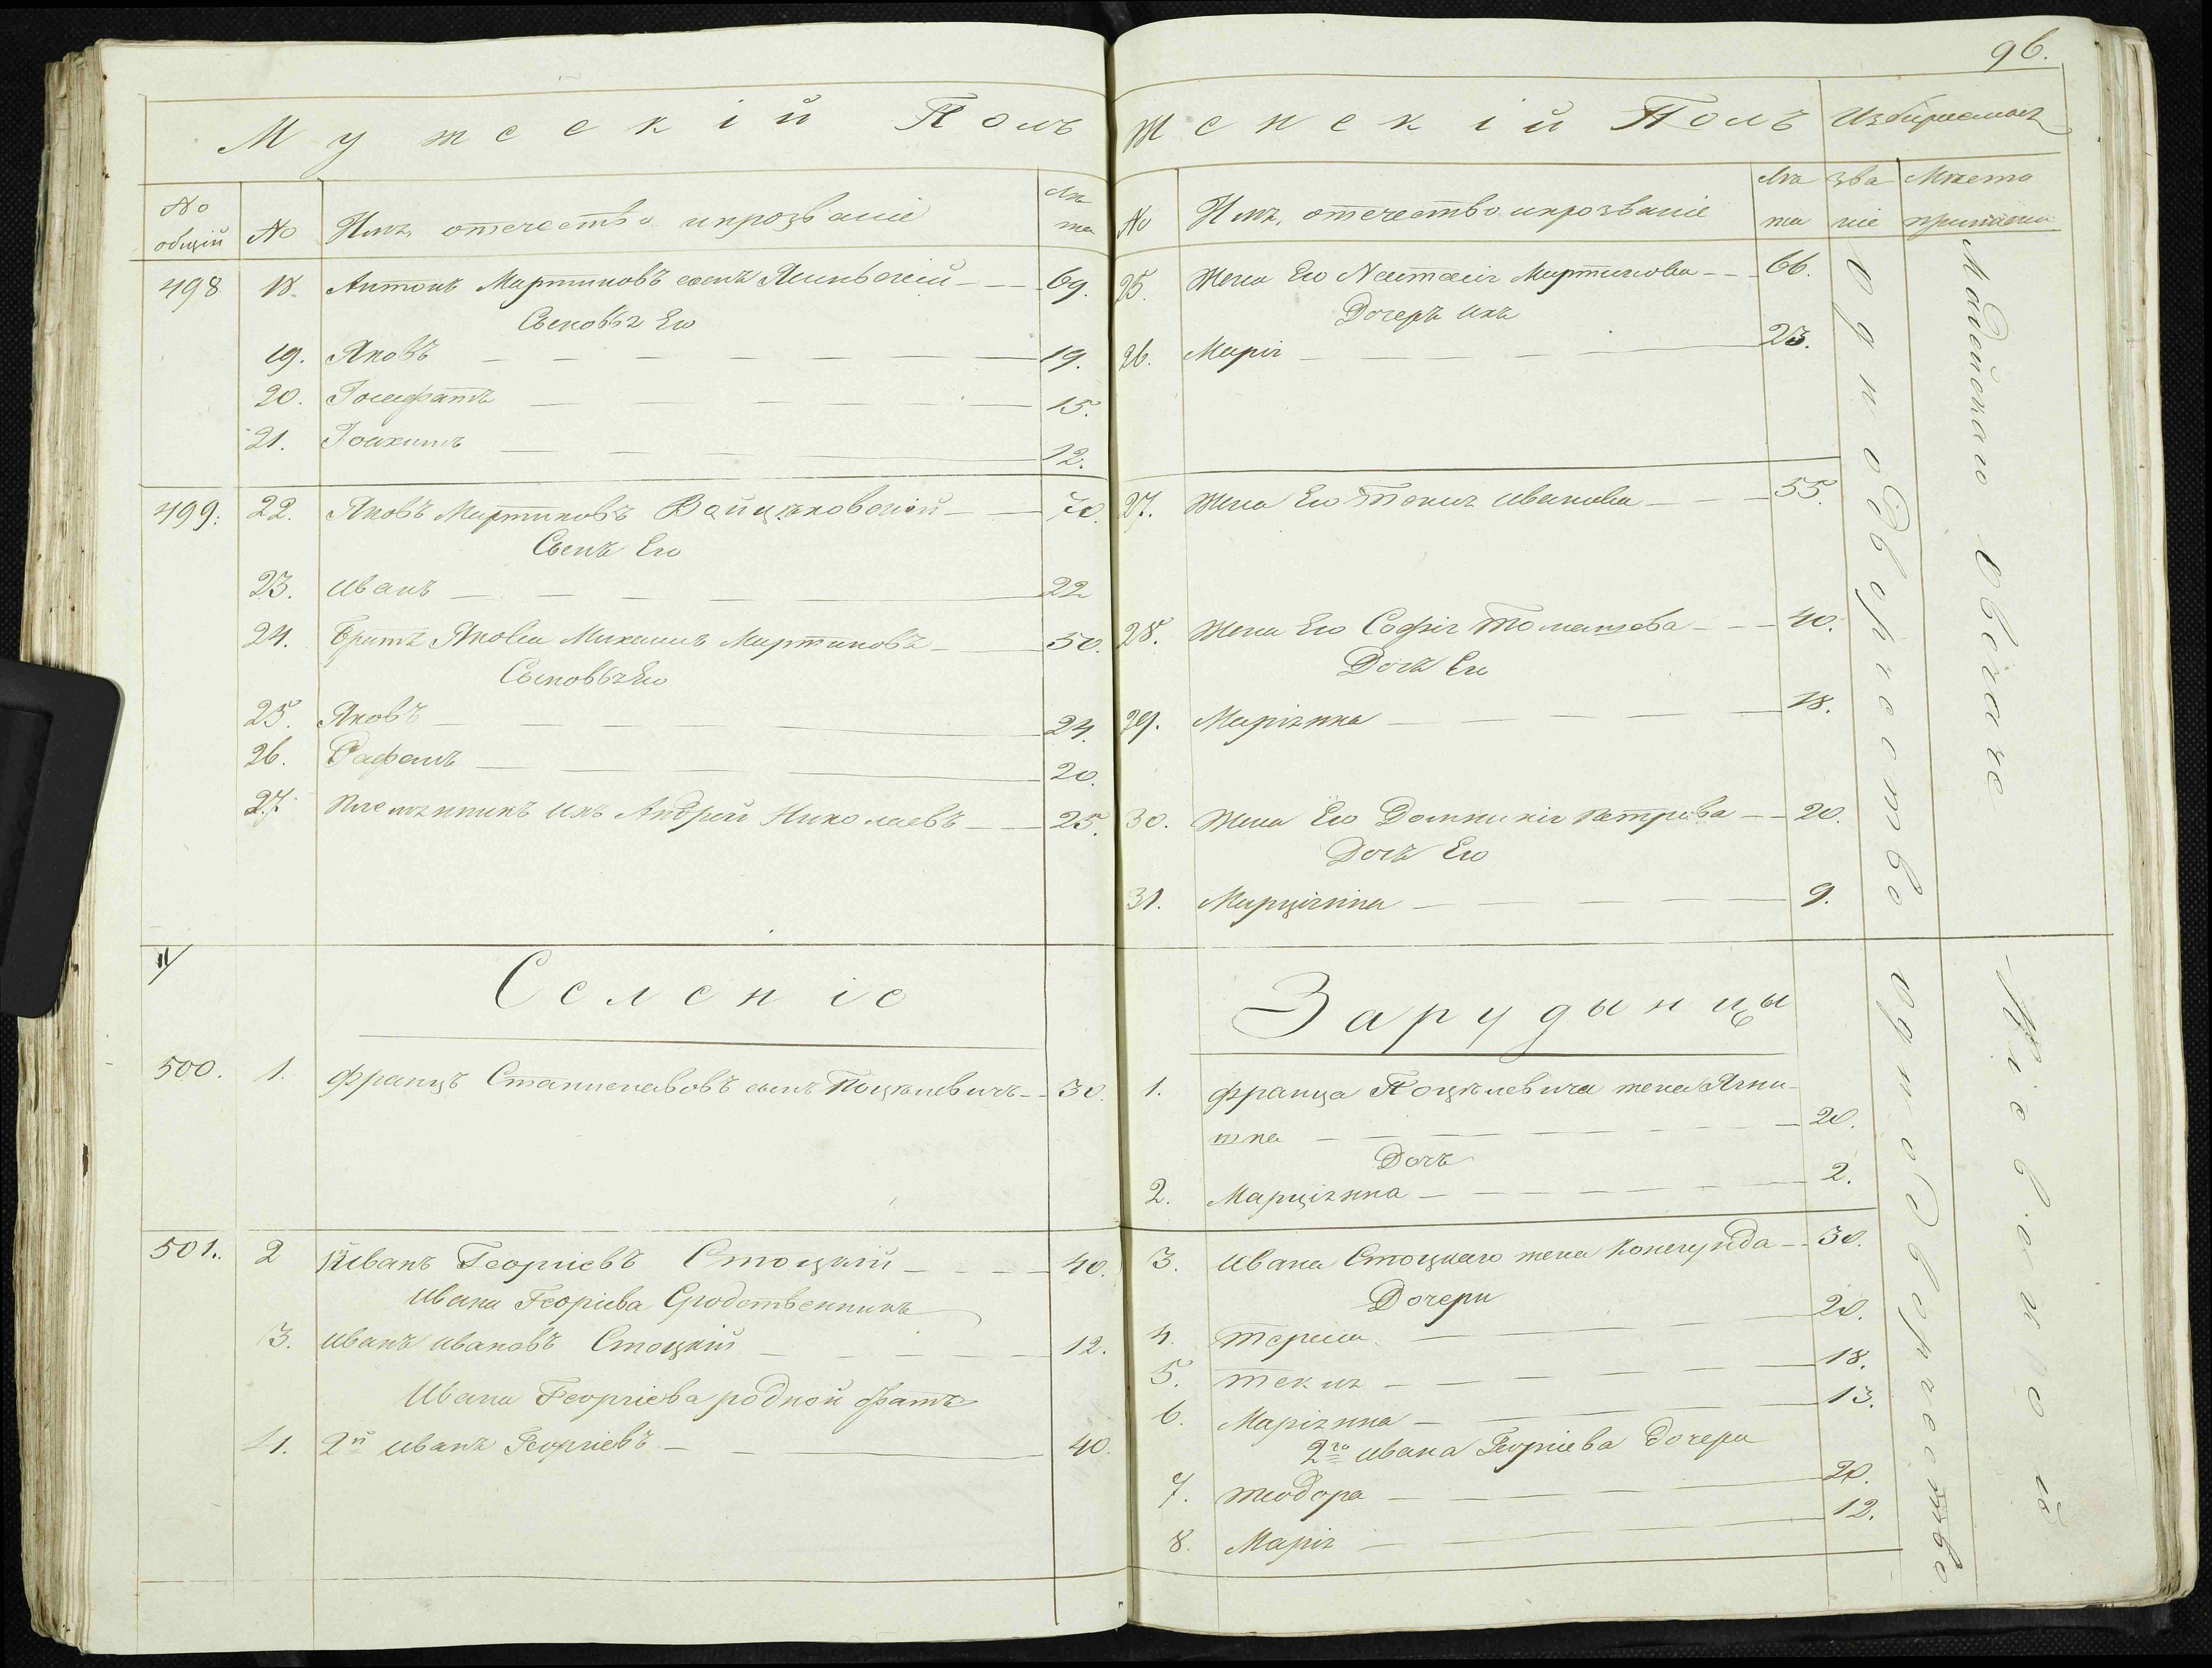 96.
Мужескій Полъ
№ общій
№
Имя, отечество и прозваніе
Лѣта
498
18.
Антонъ Мартиновъ сынъ Ясинскій
69.
Сыновья Его
19.
Яковъ
19.
20.
Іосафатъ
15.
21.
Іоахимъ
12.
499.
22.
Яковъ Мартиновъ Войцѣховскій
70.
Сынъ Его
23.
Иванъ
22
24.
Братъ Якова Михаилъ Мартиновъ
50.
Сыновья Его
25.
Яковъ
24.
26.
Рафаилъ
20.
27.
Племянникъ Ихъ Андрей Николаевъ
25.
Селеніе
500.
1.
Францъ Станиславовъ сынъ Поцѣлевичъ
30.
501.
2
Иванъ Георгіевъ Стоцкій
40.
Ивана Георгіева Сродственникъ
3.
Иванъ Ивановъ Стоцкій
12.
Ивана Георгіева родной братъ
4.
2й Иванъ Георгіевъ
40.
Женскій Полъ
Избираемыя
№
Имя, отечество и прозваніе
Лѣта
званіе
Мѣсто приписки
25.
Жена Его Наталія Мартинова
66.
Дочеръ ихъ
26.
Марія
23.
27.
Жена Его Текля Иванова
55.
28.
Жена Его Софія Томашова
40.
Дочъ Его
29.
Маріянна
18.
30.
Жена Его Доминикія Петрова
20.
Дочъ Его
31.
Марціянна
9.
Однодворчество
Зарудынцы
1.
Франца Поцѣлевича жена Агни-
шка
20.
Дочъ
2.
Марціянна
2.
3.
Ивана Стоцкаго жена Конегунда
30.
Дочери
4.
Тереса
20.
5.
Текля
18.
6.
Маріянна
13.
2го Ивана Георгіева дочери
7.
Теодора
20.
8.
Марія
12.
Однодворчество